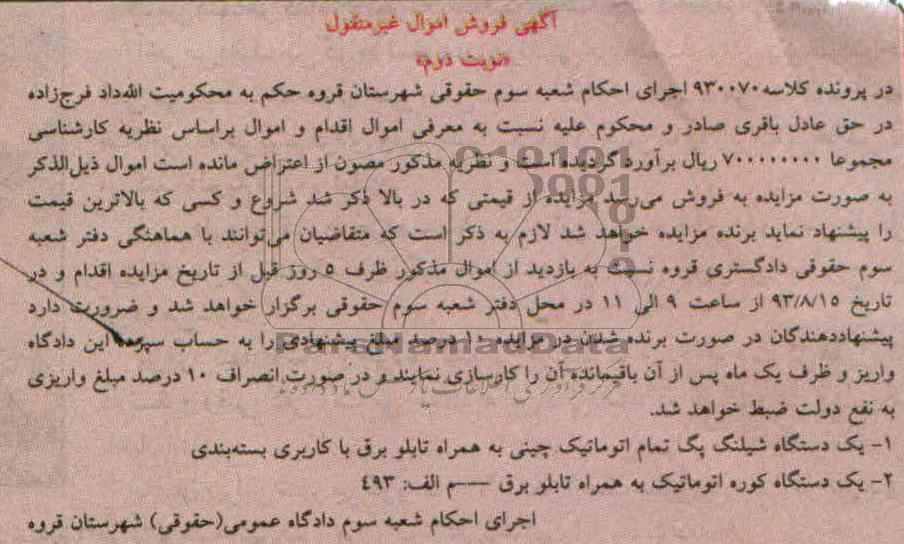 آگهی فروش اموال غیرمنقول
«نوبت دوم»
در پرونده کلاسه ۹۳۰۰۷۰ اجرای احکام شعبه سوم حقوقی شهرستان قروه حکم به محکومیت الله‌داد فرج‌زاده
در حق عادل باقری صادر و محکوم علیه نسبت به معرفی اموال اقدام و اموال براساس نظریه کارشناسی
مجموعا ۷۰۰۰۰۰۰۰۰ ریال برآورد گردیده است و نظریه مذکور مصون از اعتراض مانده است اموال ذیل‌الذکر
به صورت مزایده به فروش می‌رسد مزایده از قیمتی که در بالا ذکر شد شروع و کسی که بالاترین قیمت
را پیشنهاد نماید برنده مزایده خواهد شد لازم به ذکر است که متقاضیان می‌توانند با هماهنگی دفتر شعبه
سوم حقوقی دادگستری قروه نسبت به بازدید از اموال مذکور ظرف ۵ روز قبل از تاریخ مزایده اقدام و در
تاریخ ۹۳/۸/۱۵ از ساعت ۹ الی ۱۱ در محل دفتر شعبه سوم حقوقی برگزار خواهد شد و ضرورت دارد
پیشنهاددهندگان در صورت برنده شدن در مزایده ۱۰ درصد مبلغ پیشنهادی را به حساب سپرده این دادگاه
واریز و ظرف یک ماه پس از آن باقیمانده آن را کارسازی نمایند و در صورت انصراف ۱۰ درصد مبلغ واریزی
به نفع دولت ضبط خواهد شد.
۱- یک دستگاه شیلنگ پگ تمام اتوماتیک چینی به همراه تابلو برق با کاربری بسته‌بندی
۲- یک دستگاه کوره اتوماتیک به همراه تابلو برق ——م الف: ۴۹۳
اجرای احکام شعبه سوم دادگاه عمومی(حقوقی) شهرستان قروه
ParsNamadData